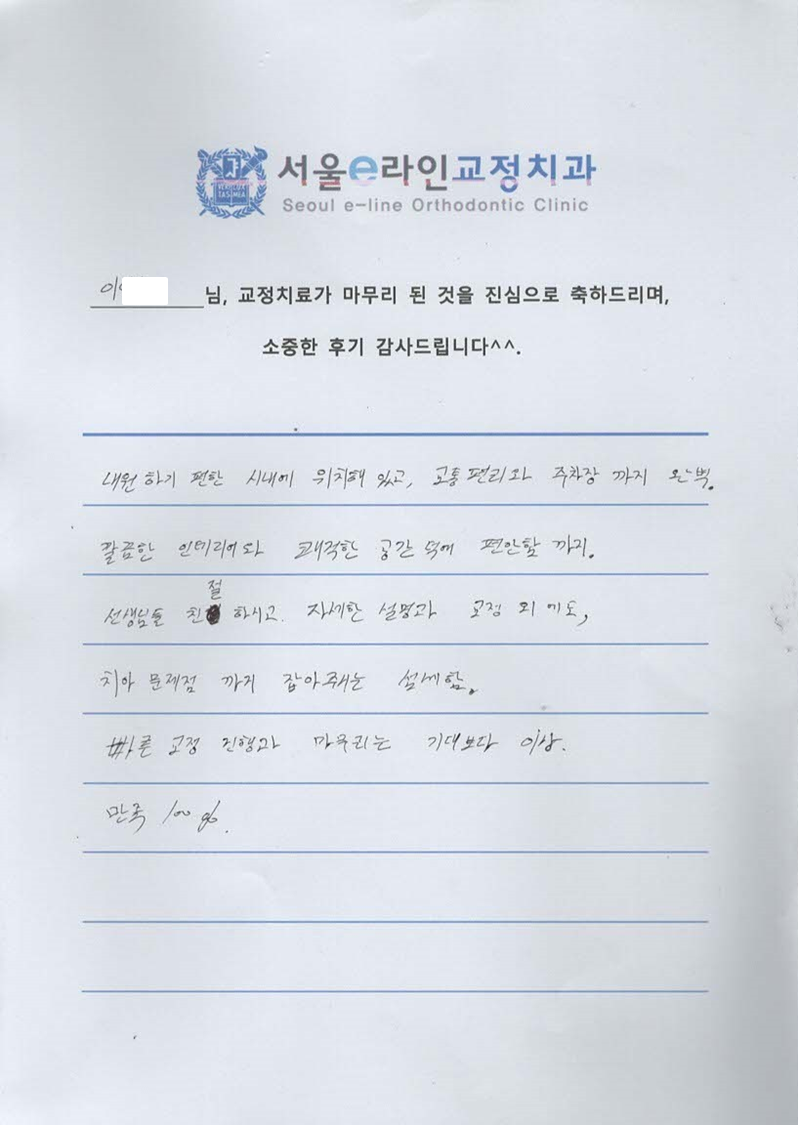 서울e라인교정치과
Seoul e-line Orthodontic Clinic
이 님, 교정치료가 마무리 된 것을 진심으로 축하드리며,
소중한 후기 감사드립니다^^.
내원 하기 편한 시내에 위치해 있고, 교통편리와 주차장 까지 완벽.
깔끔한 인테리어와 쾌적한 공간 덕에 편안함 까지.
선생님들 친절 하시고. 자세한 설명과 교정 외 에도,
치아 문제점 까지 잡아주시는 섬세함.
빠른 교정 진행과 마무리는 기대보다 이상.
만족 100%.